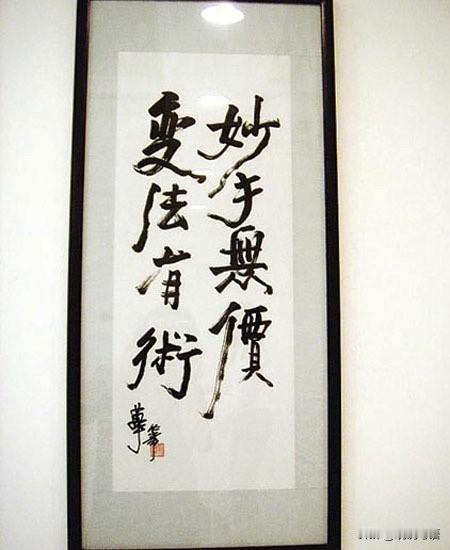 妙手無價
变法有術